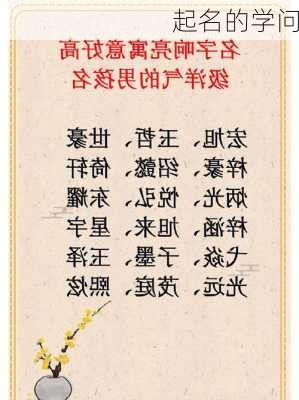 起名的学问
名字响亮寓意好高
级洋气的男孩名
宏旭、玉哲、世豪
梓豪、绍懿、倚轩
炳光、悦弘、东耀
梓涵、旭来、星宇
弋焱、子墨、玉泽
光远、茂庭、熙炫